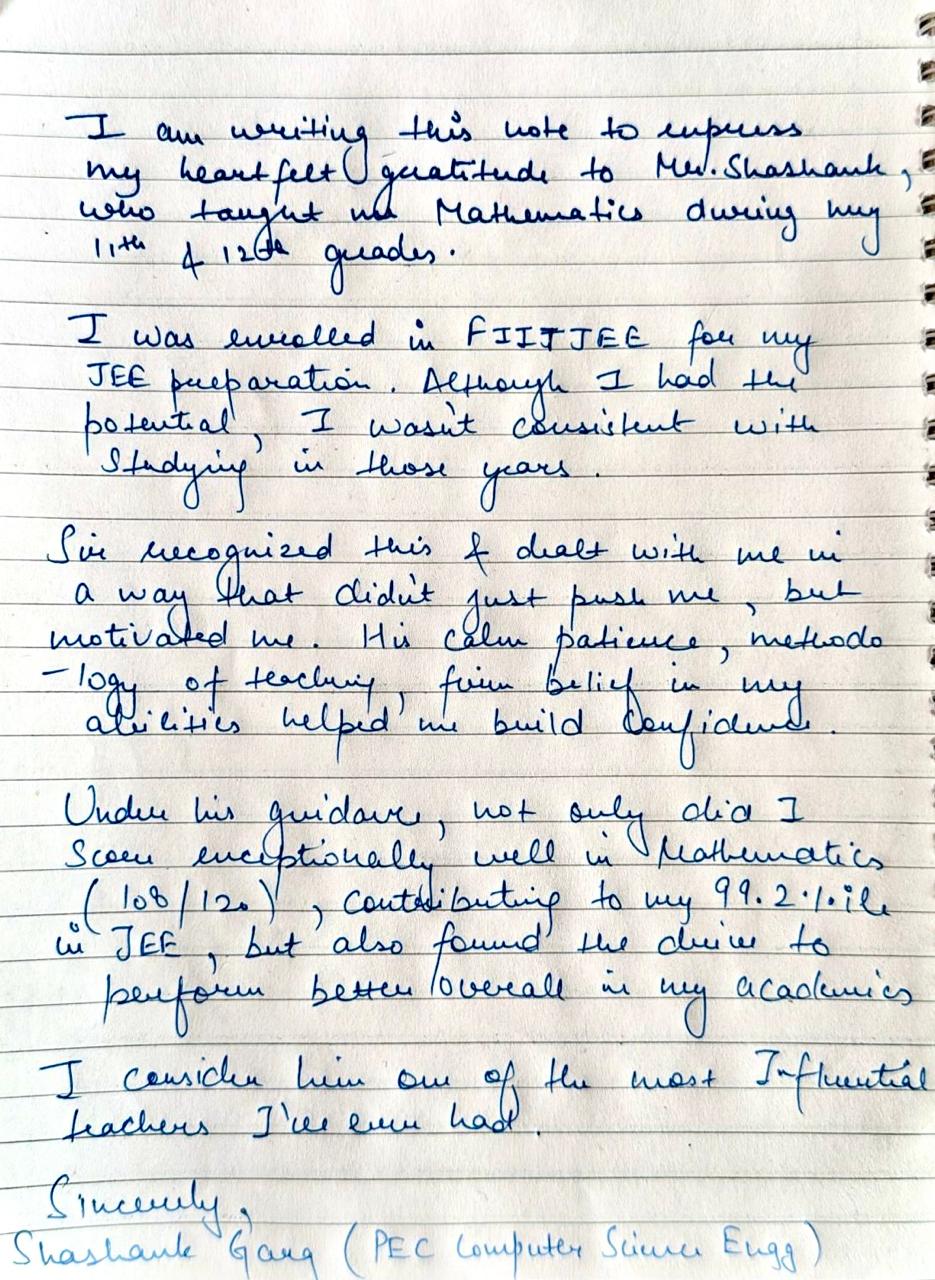 I am writing this note to express
my heartfelt gratitude to Mr. Shashank,
who taught me Mathematics during my
11th & 12th grades.
I was enrolled in FIITJEE for my
JEE preparation. Although I had the
potential, I wasn't consistent with
studying in those years.
Sir recognized this & dealt with me in
a way that didn't just push me, but
motivated me. His calm patience, methodo
-logy of teaching, firm belief in my
abilities helped me build confidence.
Under his guidance, not only did I
score exceptionally well in Mathematics
(108/120), contributing to my 99.2%ile
in JEE, but also found the drive to
perform better overall in my academics
I consider him one of the most Influential
teachers I've ever had.
Sincerely,
Shashank Garg (PEC Computer Science Engg)